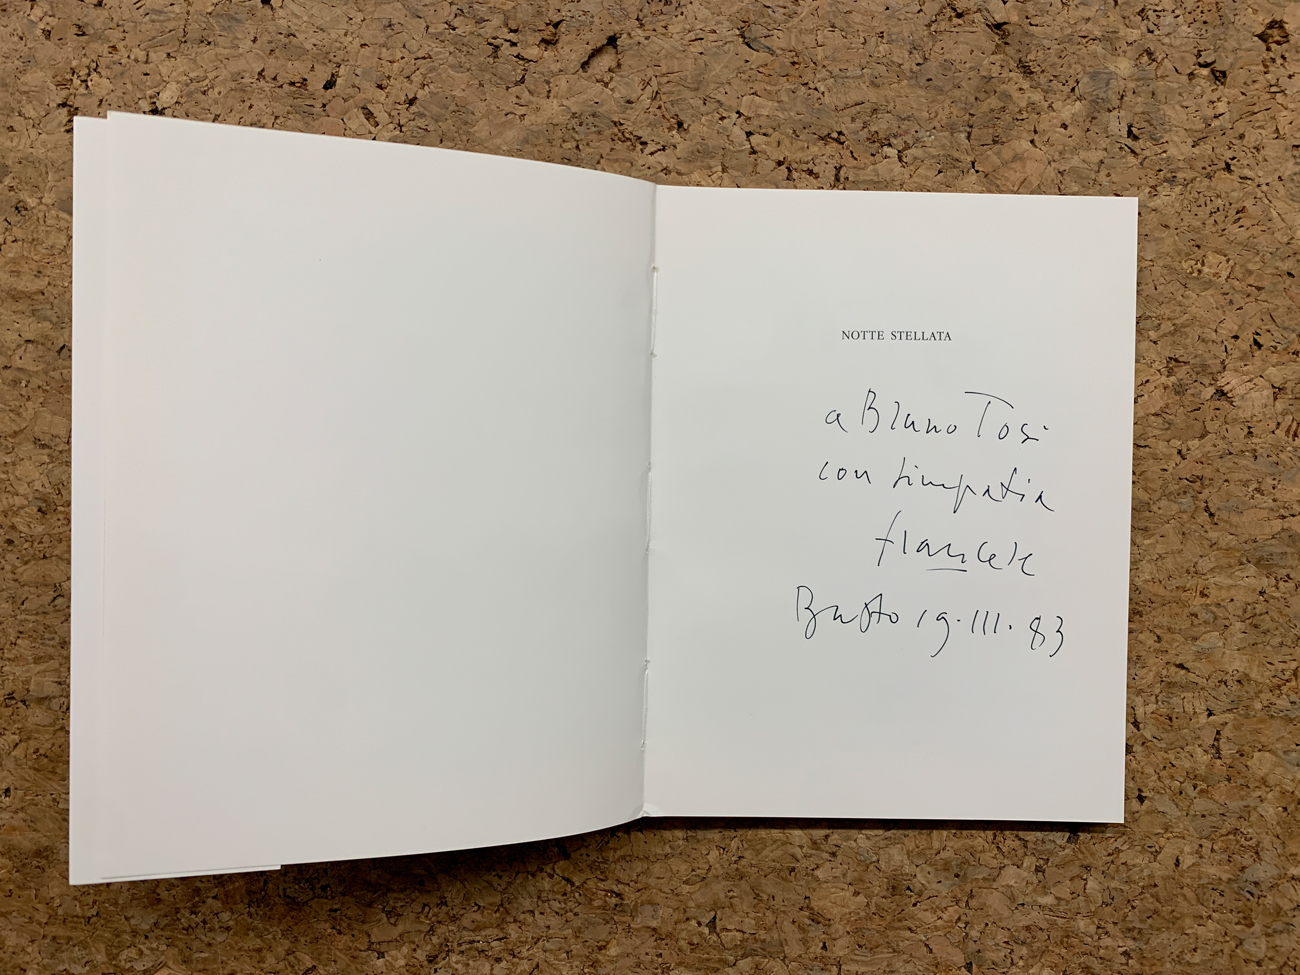 NOTTE STELLATA
a Bruno Tosi
con simpatia
francese
Busto 19.III.83